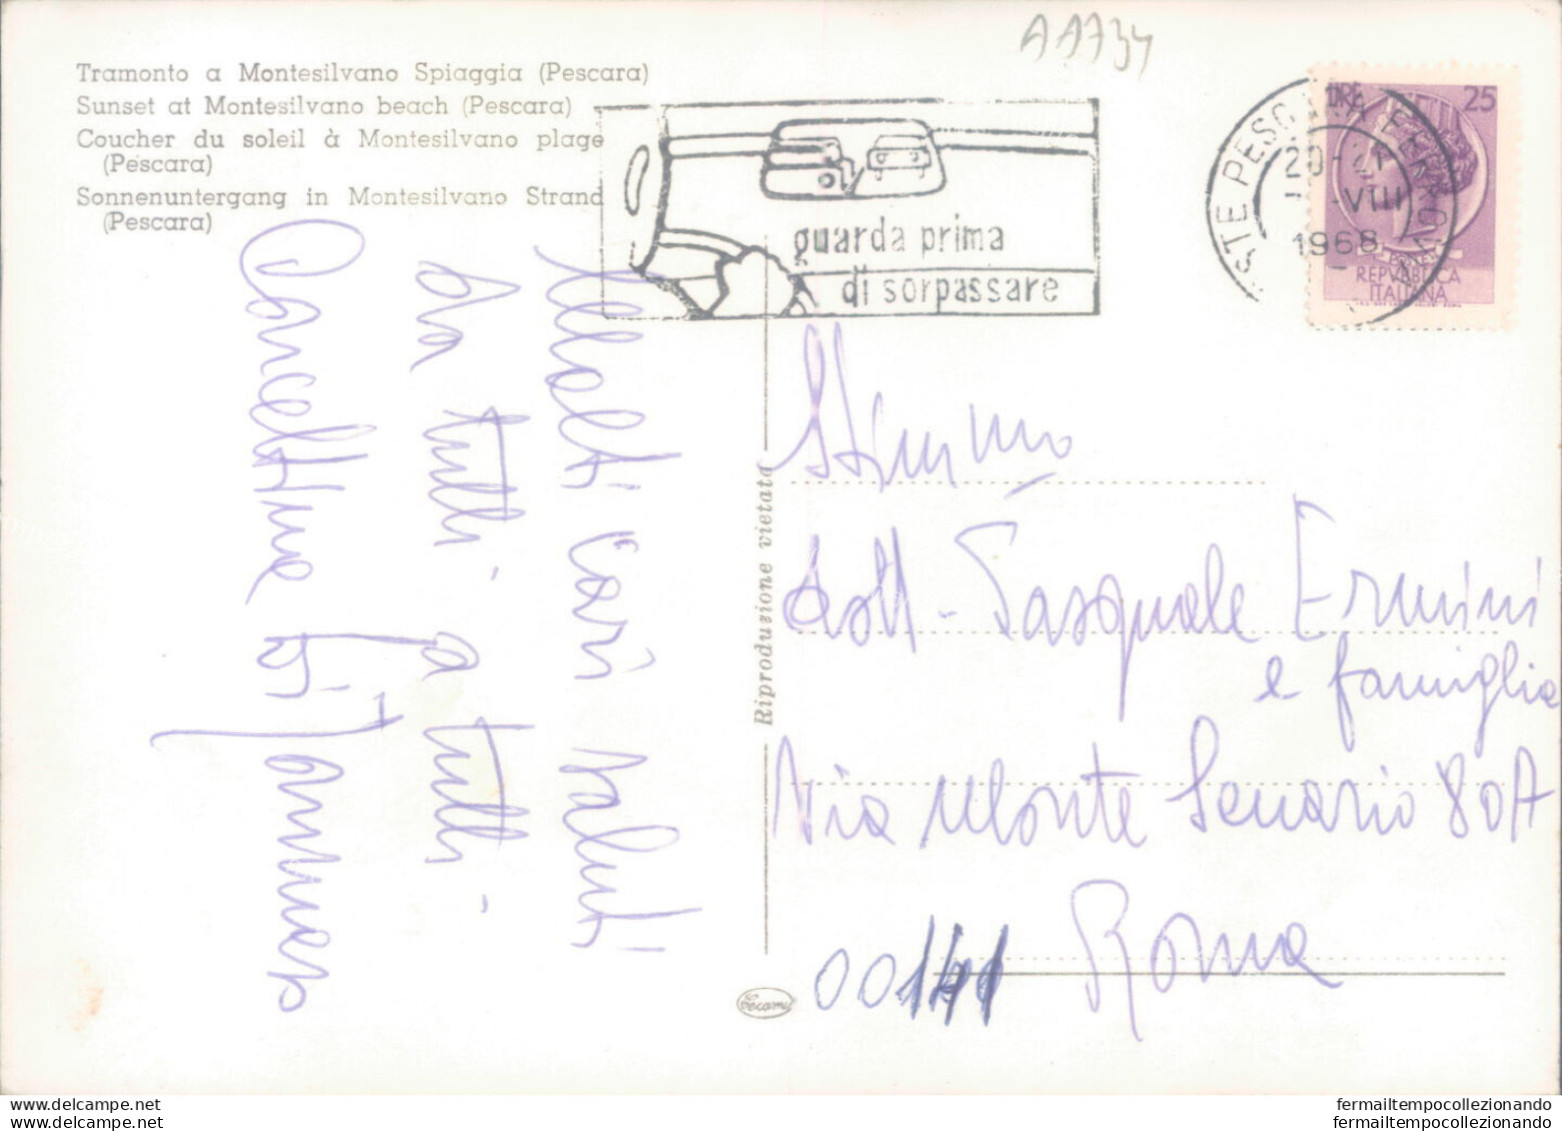 AA734
Tramonto a Montesilvano Spiaggia (Pescara)
Sunset at Montesilvano beach (Pescara)
Coucher du soleil à Montesilvano plage
(Pescara)
Sonnenuntergang in Montesilvano Strand
(Pescara)
guarda prima
di sorpassare
PESCARA FERROVIA
20-21
VIII
1968
LIRE 25
REPVBBLICA
ITALIANA
Molti cari saluti
da tutti a tutti
Concettina
Riproduzione vietata
Dott. Pasquale Ermini
e famiglia
Via Monte Senario 80A
00141 Roma
Cecami
www.delcampe.net
www.delcampe.net
fermailtempocollezionando
fermailtempocollezionando